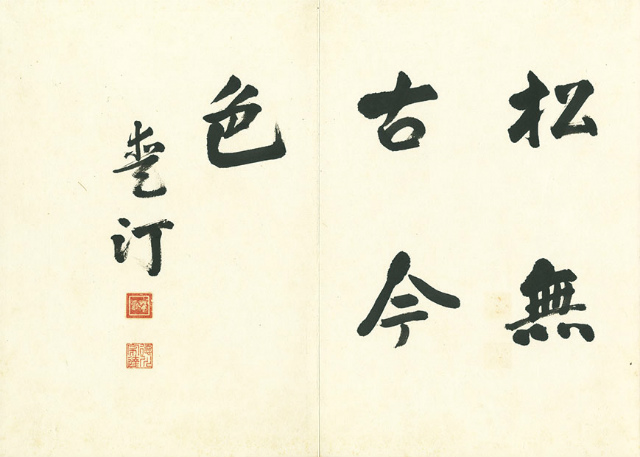 松無
古今
色
汀